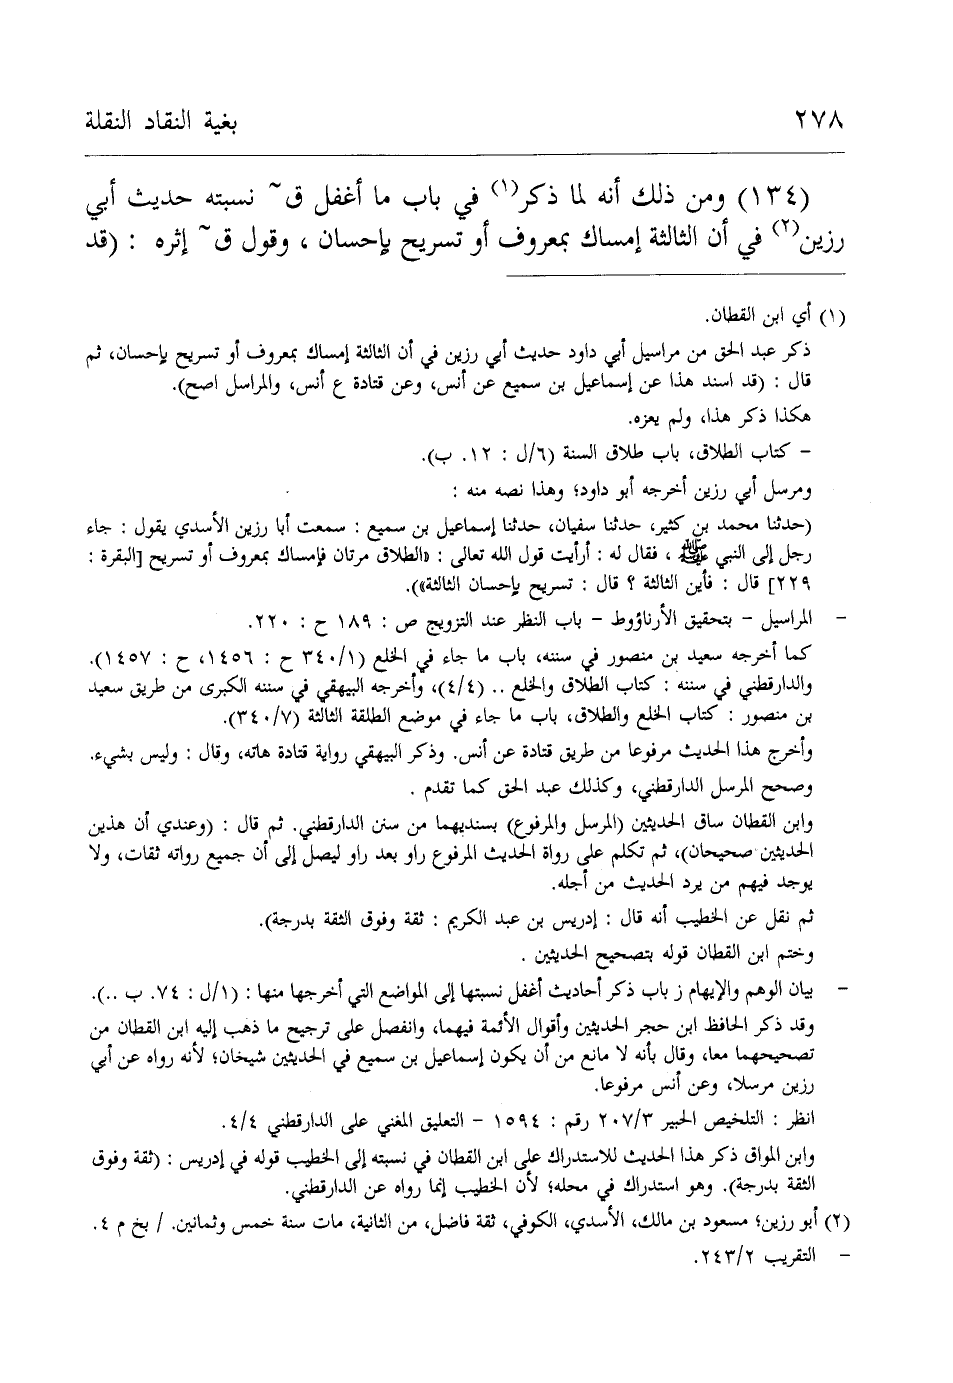 ٢٧٨ بغية النقاد النقلة
(١٣٤) ومن ذلك أنه لما ذكر(١) في باب ما أغفل ق~ نسبته حديث أبي
رزين(٢) في أن الثالثة إمساك بمعروف أو تسريح بإحسان ، وقول ق~ إثره : (قد
(١) أي ابن القطان.
ذكر عبد الحق من مراسيل أبي داود حديث أبي رزين في أن الثالثة إمساك بمعروف أو تسريح بإحسان، ثم
قال : (قد اسند هذا عن إسماعيل بن سميع عن أنس، وعن قتادة ع أنس، والمراسل اصح).
هكذا ذكر هذا، ولم يعزه.
- كتاب الطلاق، باب طلاق السنة (٦/ل : ١٢. ب).
ومرسل أبي رزين أخرجه أبو داود؛ وهذا نصه منه :
(حدثنا محمد بن كثير، حدثنا سفيان، حدثنا إسماعيل بن سميع : سمعت أبا رزين الأسدي يقول : جاء
رجل إلى النبي ﷺ ، فقال له : أرأيت قول الله تعالى : «الطلاق مرتان فإمساك بمعروف أو تسريح [البقرة :
٢٢٩] قال : فأين الثالثة ؟ قال : تسريح بإحسان الثالثة»).
- المراسيل - بتحقيق الأرناؤوط - باب النظر عند التزويج ص : ١٨٩ ح : ٢٢٠.
كما أخرجه سعيد بن منصور في سننه، باب ما جاء في الخلع (٣٤٠/١ ح : ١٤٥٦، ح : ١٤٥٧).
والدارقطني في سننه : كتاب الطلاق والخلع .. (٤/٤)، وأخرجه البيهقي في سننه الكبرى من طريق سعيد
بن منصور : كتاب الخلع والطلاق، باب ما جاء في موضع الطلقة الثالثة (٣٤٠/٧).
وأخرج هذا الحديث مرفوعا من طريق قتادة عن أنس. وذكر البيهقي رواية قتادة هاته، وقال : وليس بشيء.
وصحح المرسل الدارقطني، وكذلك عبد الحق كما تقدم .
وابن القطان ساق الحديثين (المرسل والمرفوع) بسنديهما من سنن الدارقطني. ثم قال : (وعندي أن هذين
الحديثين صحيحان)، ثم تكلم على رواة الحديث المرفوع راو بعد راو ليصل إلى أن جميع رواته ثقات، ولا
يوجد فيهم من يرد الحديث من أجله.
ثم نقل عن الخطيب أنه قال : إدريس بن عبد الكريم : ثقة وفوق الثقة بدرجة).
وختم ابن القطان قوله بتصحيح الحديثين .
- بيان الوهم والإيهام ز باب ذكر أحاديث أغفل نسبتها إلى المواضع التي أخرجها منها : (١/ل : ٧٤. ب ..).
وقد ذكر الحافظ ابن حجر الحديثين وأقوال الأئمة فيهما، وانفصل على ترجيح ما ذهب إليه ابن القطان من
تصحيحهما معا، وقال بأنه لا مانع من أن يكون إسماعيل بن سميع في الحديثين شيخان؛ لأنه رواه عن أبي
رزين مرسلا، وعن أنس مرفوعا.
انظر : التلخيص الحبير ٢٠٧/٣ رقم : ١٥٩٤ - التعليق المغني على الدارقطني ٤/٤.
وابن المواق ذكر هذا الحديث للاستدراك على ابن القطان في نسبته إلى الخطيب قوله في إدريس : (ثقة وفوق
الثقة بدرجة). وهو استدراك في محله؛ لأن الخطيب إنما رواه عن الدارقطني.
(٢) أبو رزين؛ مسعود بن مالك، الأسدي، الكوفي، ثقة فاضل، من الثانية، مات سنة خمس وثمانين. / بخ م ٤.
- التقريب ٢٤٣/٢.